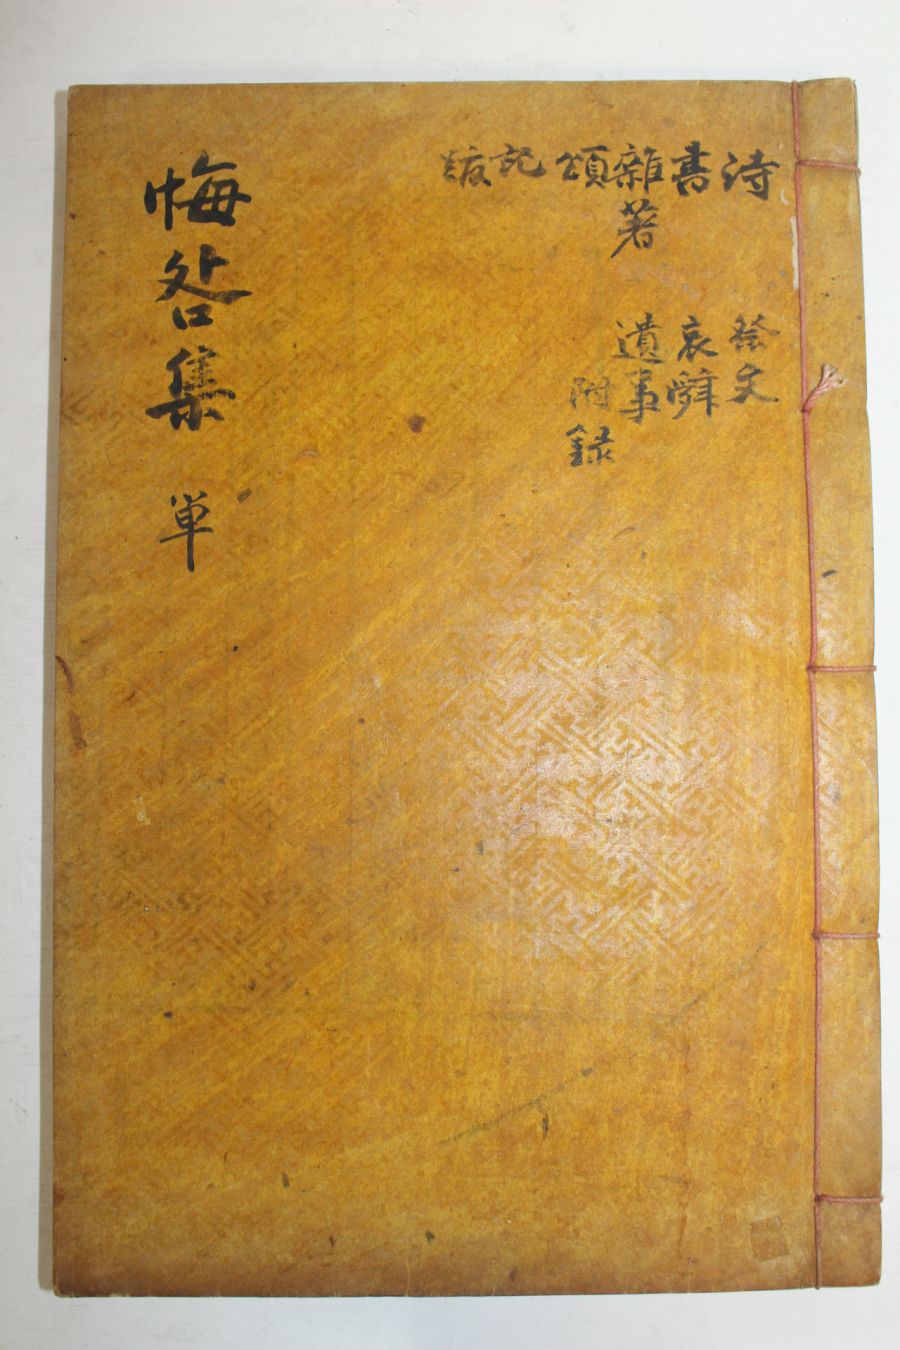 詩
書
雜著
頌
記
跋
祭文
哀辭
遺事
附錄
悔咎集 単